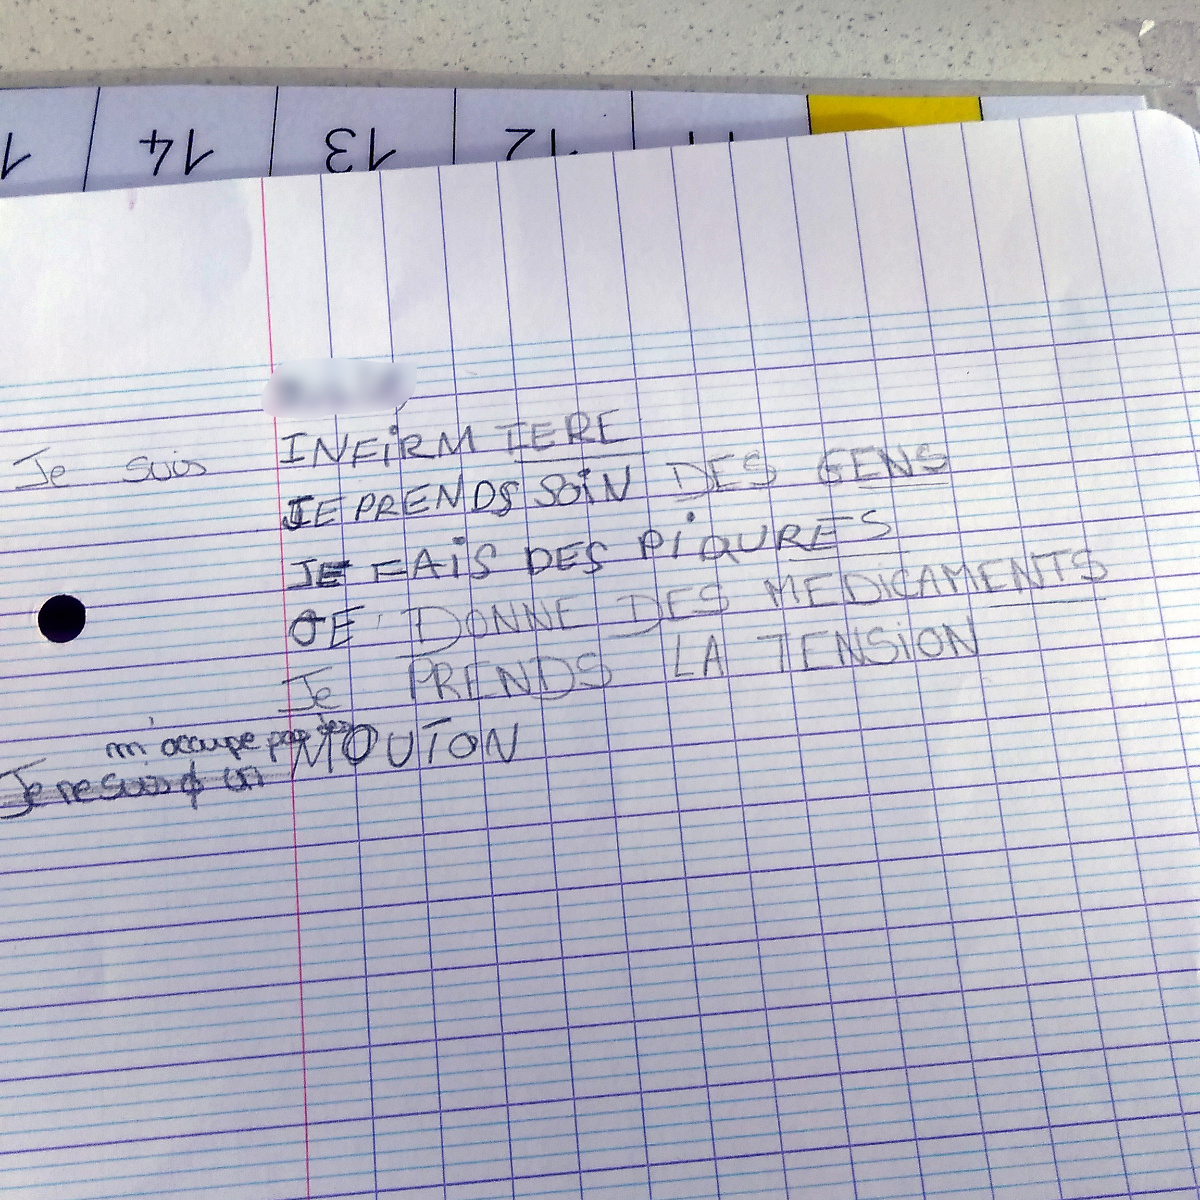 14 13 12
Je suis INFIRMIERE
JE PRENDS SOIN DES GENS
JE FAIS DES PIQURES
JE DONNE DES MEDICAMENTS
Je PRENDS LA TENSION
m'occupe pas des MOUTON
Je ne suis un